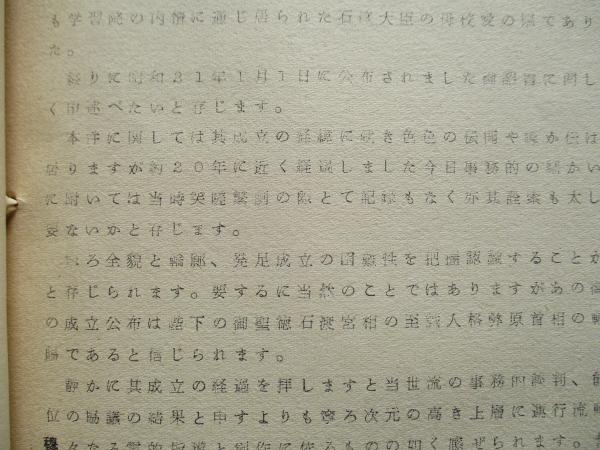 も学習院の内情に通じ居られた石渡大臣の母校愛の賜であり
た。
終りに昭和21年1月1日に公布されました御詔書に関し
く申述べたいと存じます。
本件に関しては其成立の経緯に就き色色の伝聞や噂が伝は
居りますが約20年に近く経過しました今日事務的の細かい
に就いては当時哭隠繁劇の際とて記録もなく亦其詮索も太し
要ないかと存じます。
ろ全貌と輪廓、発足成立の困難性を把握認識することが
と存じられます。要するに当然のことではありますがあの御
の成立公布は陛下の御聖徳石渡宮相の至誠人格幣原首相の
賜であると信じられます。
静かに其成立の経過を拝しますと当世流の事務的談判、
位の協議の結果と申すよりも寧ろ次元の高き上層に運行流
々たる霊的 と創作に依るものの如く感ぜられます。